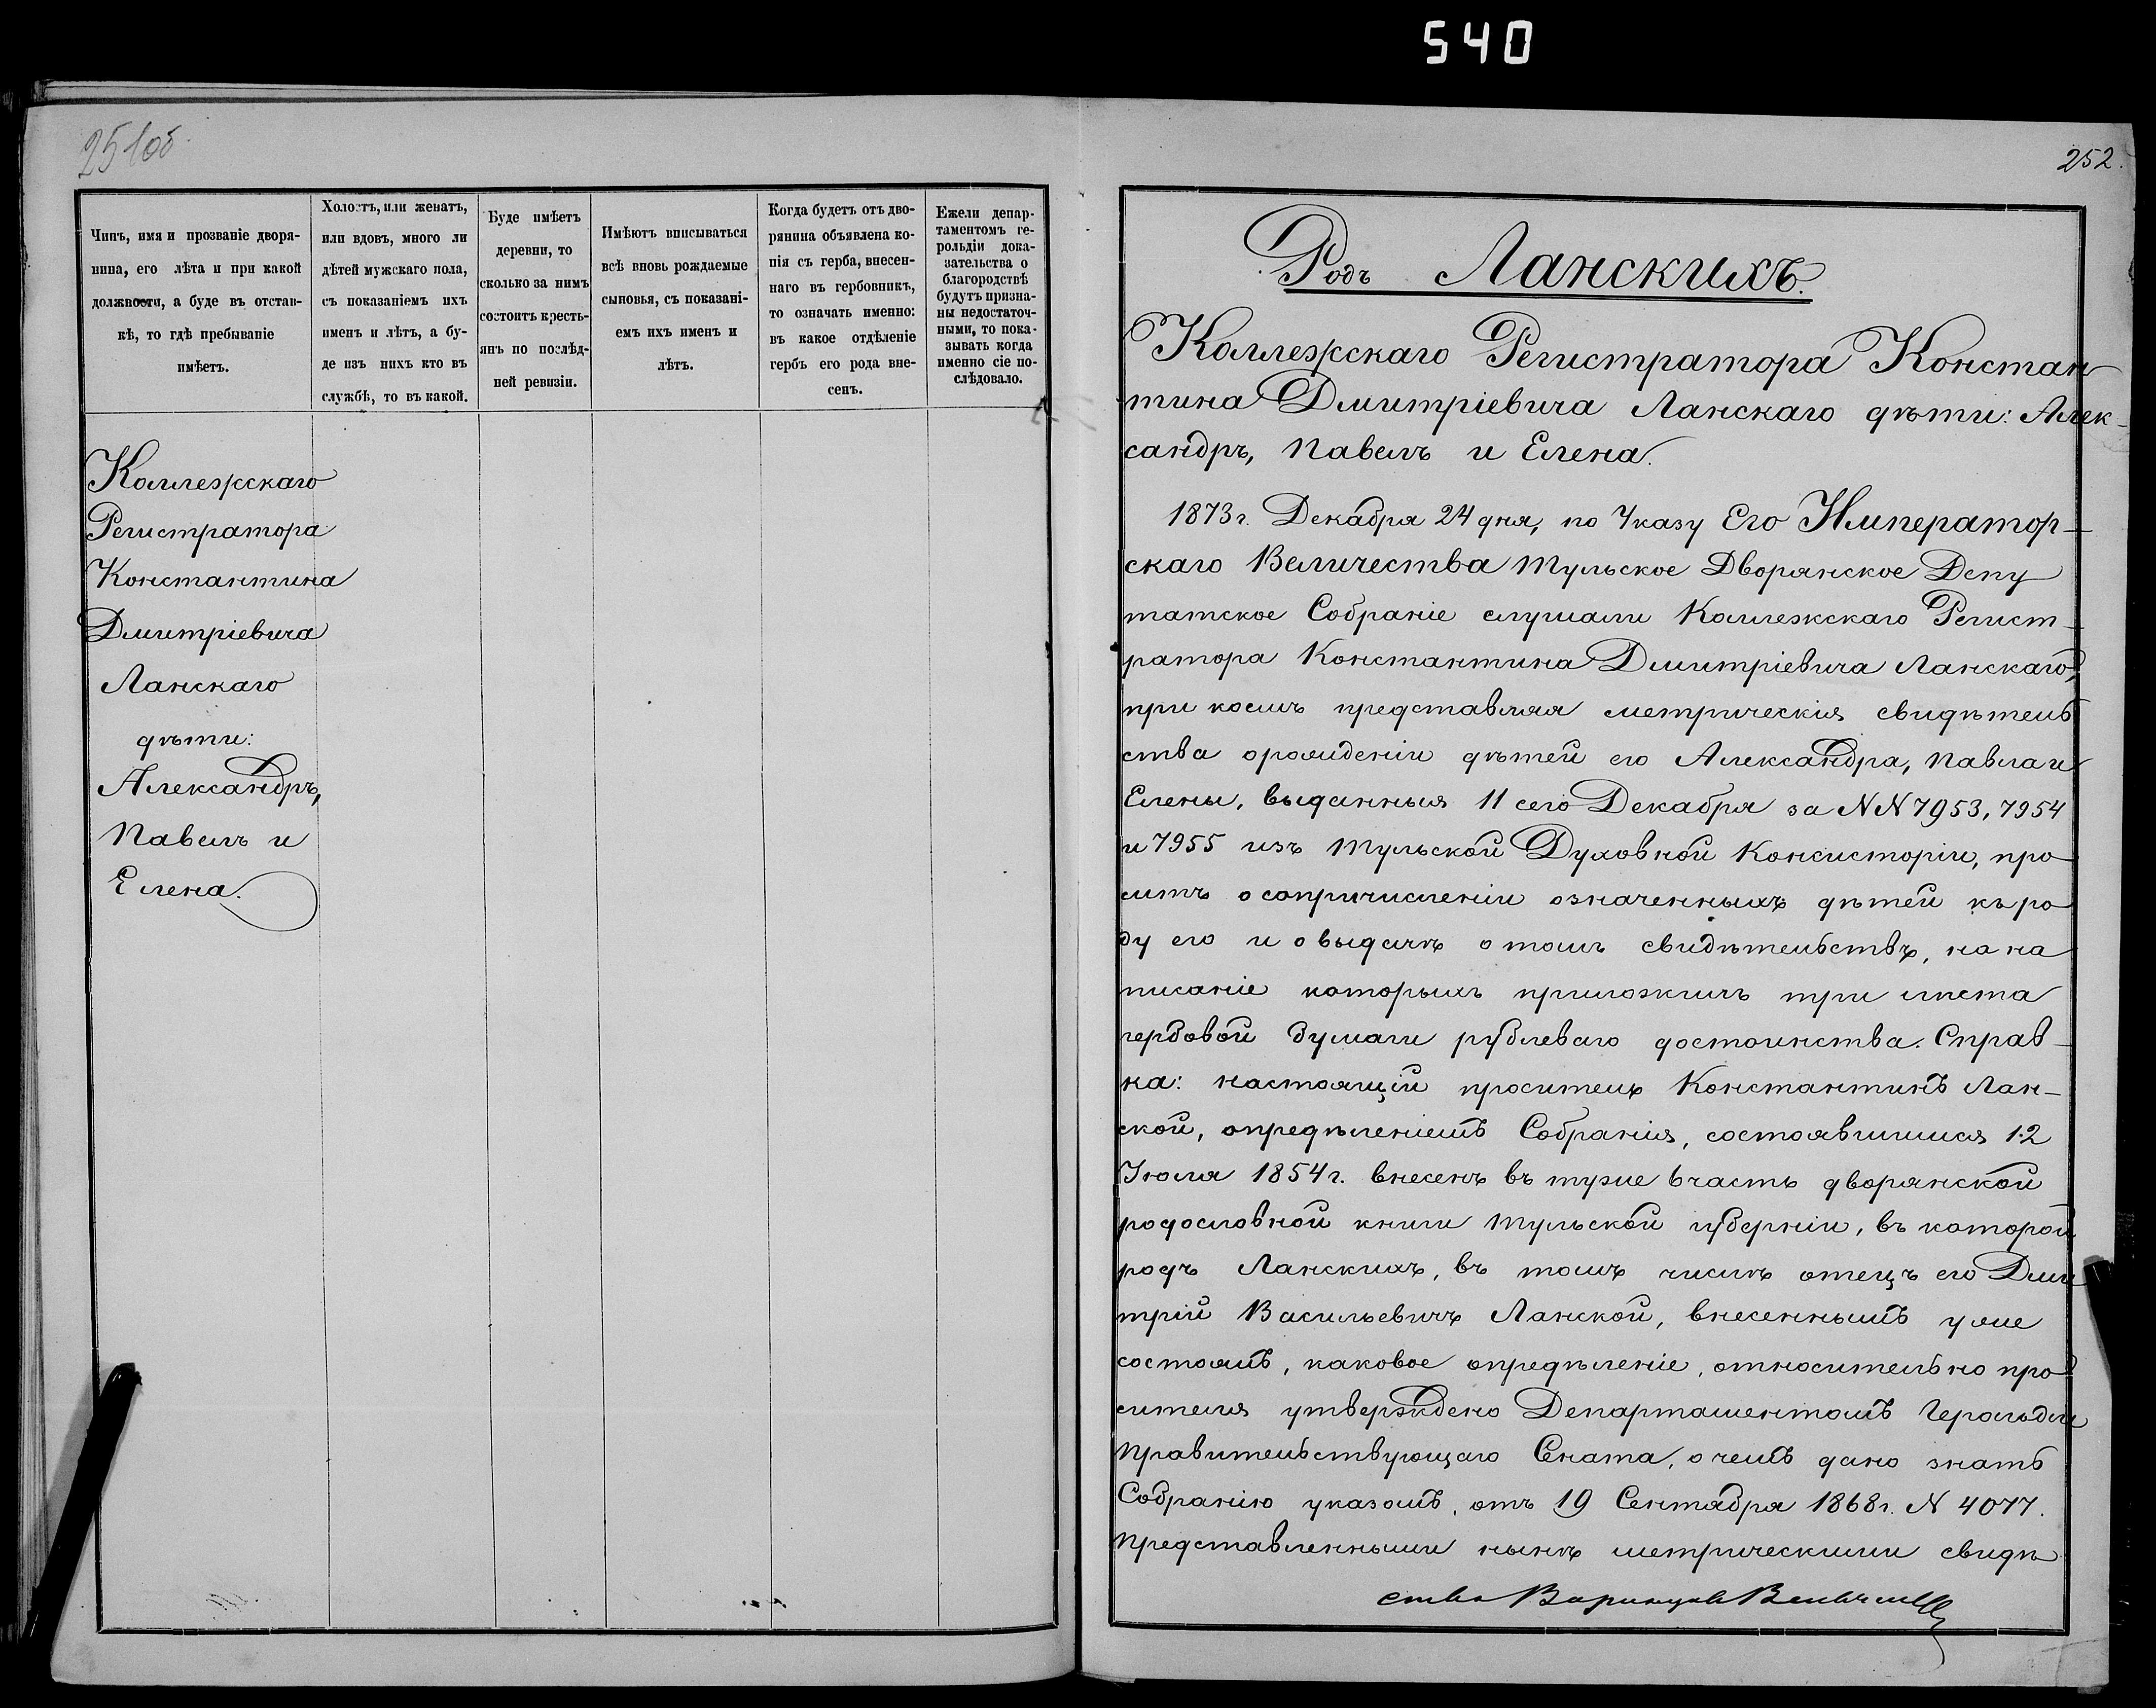 540
251об.
Чинъ, имя и прозваніе дворя-
нина, его лѣта и при какой
должности, а буде въ отстав-
кѣ, то гдѣ пребываніе
имѣетъ.
Холостъ, или женатъ,
или вдовъ, много ли
дѣтей мужскаго пола,
съ показаніемъ ихъ
именъ и лѣтъ, а бу-
де изъ нихъ кто въ
службѣ, то въ какой.
Буде имѣетъ
деревни, то
сколько за нимъ
состоитъ кресть-
янъ по послѣд-
ней ревизіи.
Имѣютъ вписываться
всѣ вновь рождаемые
сыновья, съ показані-
емъ ихъ именъ и
лѣтъ.
Когда будетъ отъ дво-
рянина объявлена ко-
пія съ герба, внесен-
наго въ гербовникъ,
то означать именно:
въ какое отдѣленіе
гербъ его рода вне-
сенъ.
Ежели депар-
таментомъ ге-
рольдіи дока-
зательства о
благородствѣ
будутъ призна-
ны недостаточ-
ными, то пока-
зывать когда
именно сіе по-
слѣдовало.
Коллежскаго
Регистратора
Константина
Дмитріевича
Ланскаго
дѣти:
Александръ,
Павелъ и
Елена.
252.
Родъ Ланскихъ.
Коллежскаго Регистратора Констан
тина Дмитріевича Ланскаго дѣти: Алек-
сандръ, Павелъ и Елена.
1873 г. Декабря 24 дня, по Указу Его Император-
скаго Величества Тульское Дворянское Депу
татское Собраніе слушали Коллежскаго Регист-
ратора Константина Дмитріевича Ланскаго,
при коемъ представляя метрическія свидѣтель
ства о рожденіи дѣтей его Александра, Павла и
Елены, выданныя 11 сего Декабря за NN 7953, 7954
и 7955 изъ Тульской Духовной Консисторіи, про
ситъ о сопричисленіи означенныхъ дѣтей къ ро
ду его и о выдачѣ о томъ свидѣтельствъ, на на
писаніе которыхъ приложилъ три листа
гербовой бумаги рублеваго достоинства. Справ-
ка: настоящій проситель Константинъ Лан-
ской, опредѣленіемъ Собранія, состоявшимся 12
Іюля 1854 г. внесенъ въ туже 6 часть дворянской
родословной книги Тульской губерніи, въ которой
родъ Ланскихъ, въ томъ числѣ отецъ его Дми
трій Васильевичъ Ланской, внесеннымъ уже
состоитъ, каковое опредѣленіе, относительно про
сителя утверждено Департаментомъ Герольдіи
Правительствующаго Сената, о чемъ дано знать
Собранію указомъ, отъ 19 Сентября 1868 г. N 4077.
Представленными нынѣ метрическими свидѣ
ства